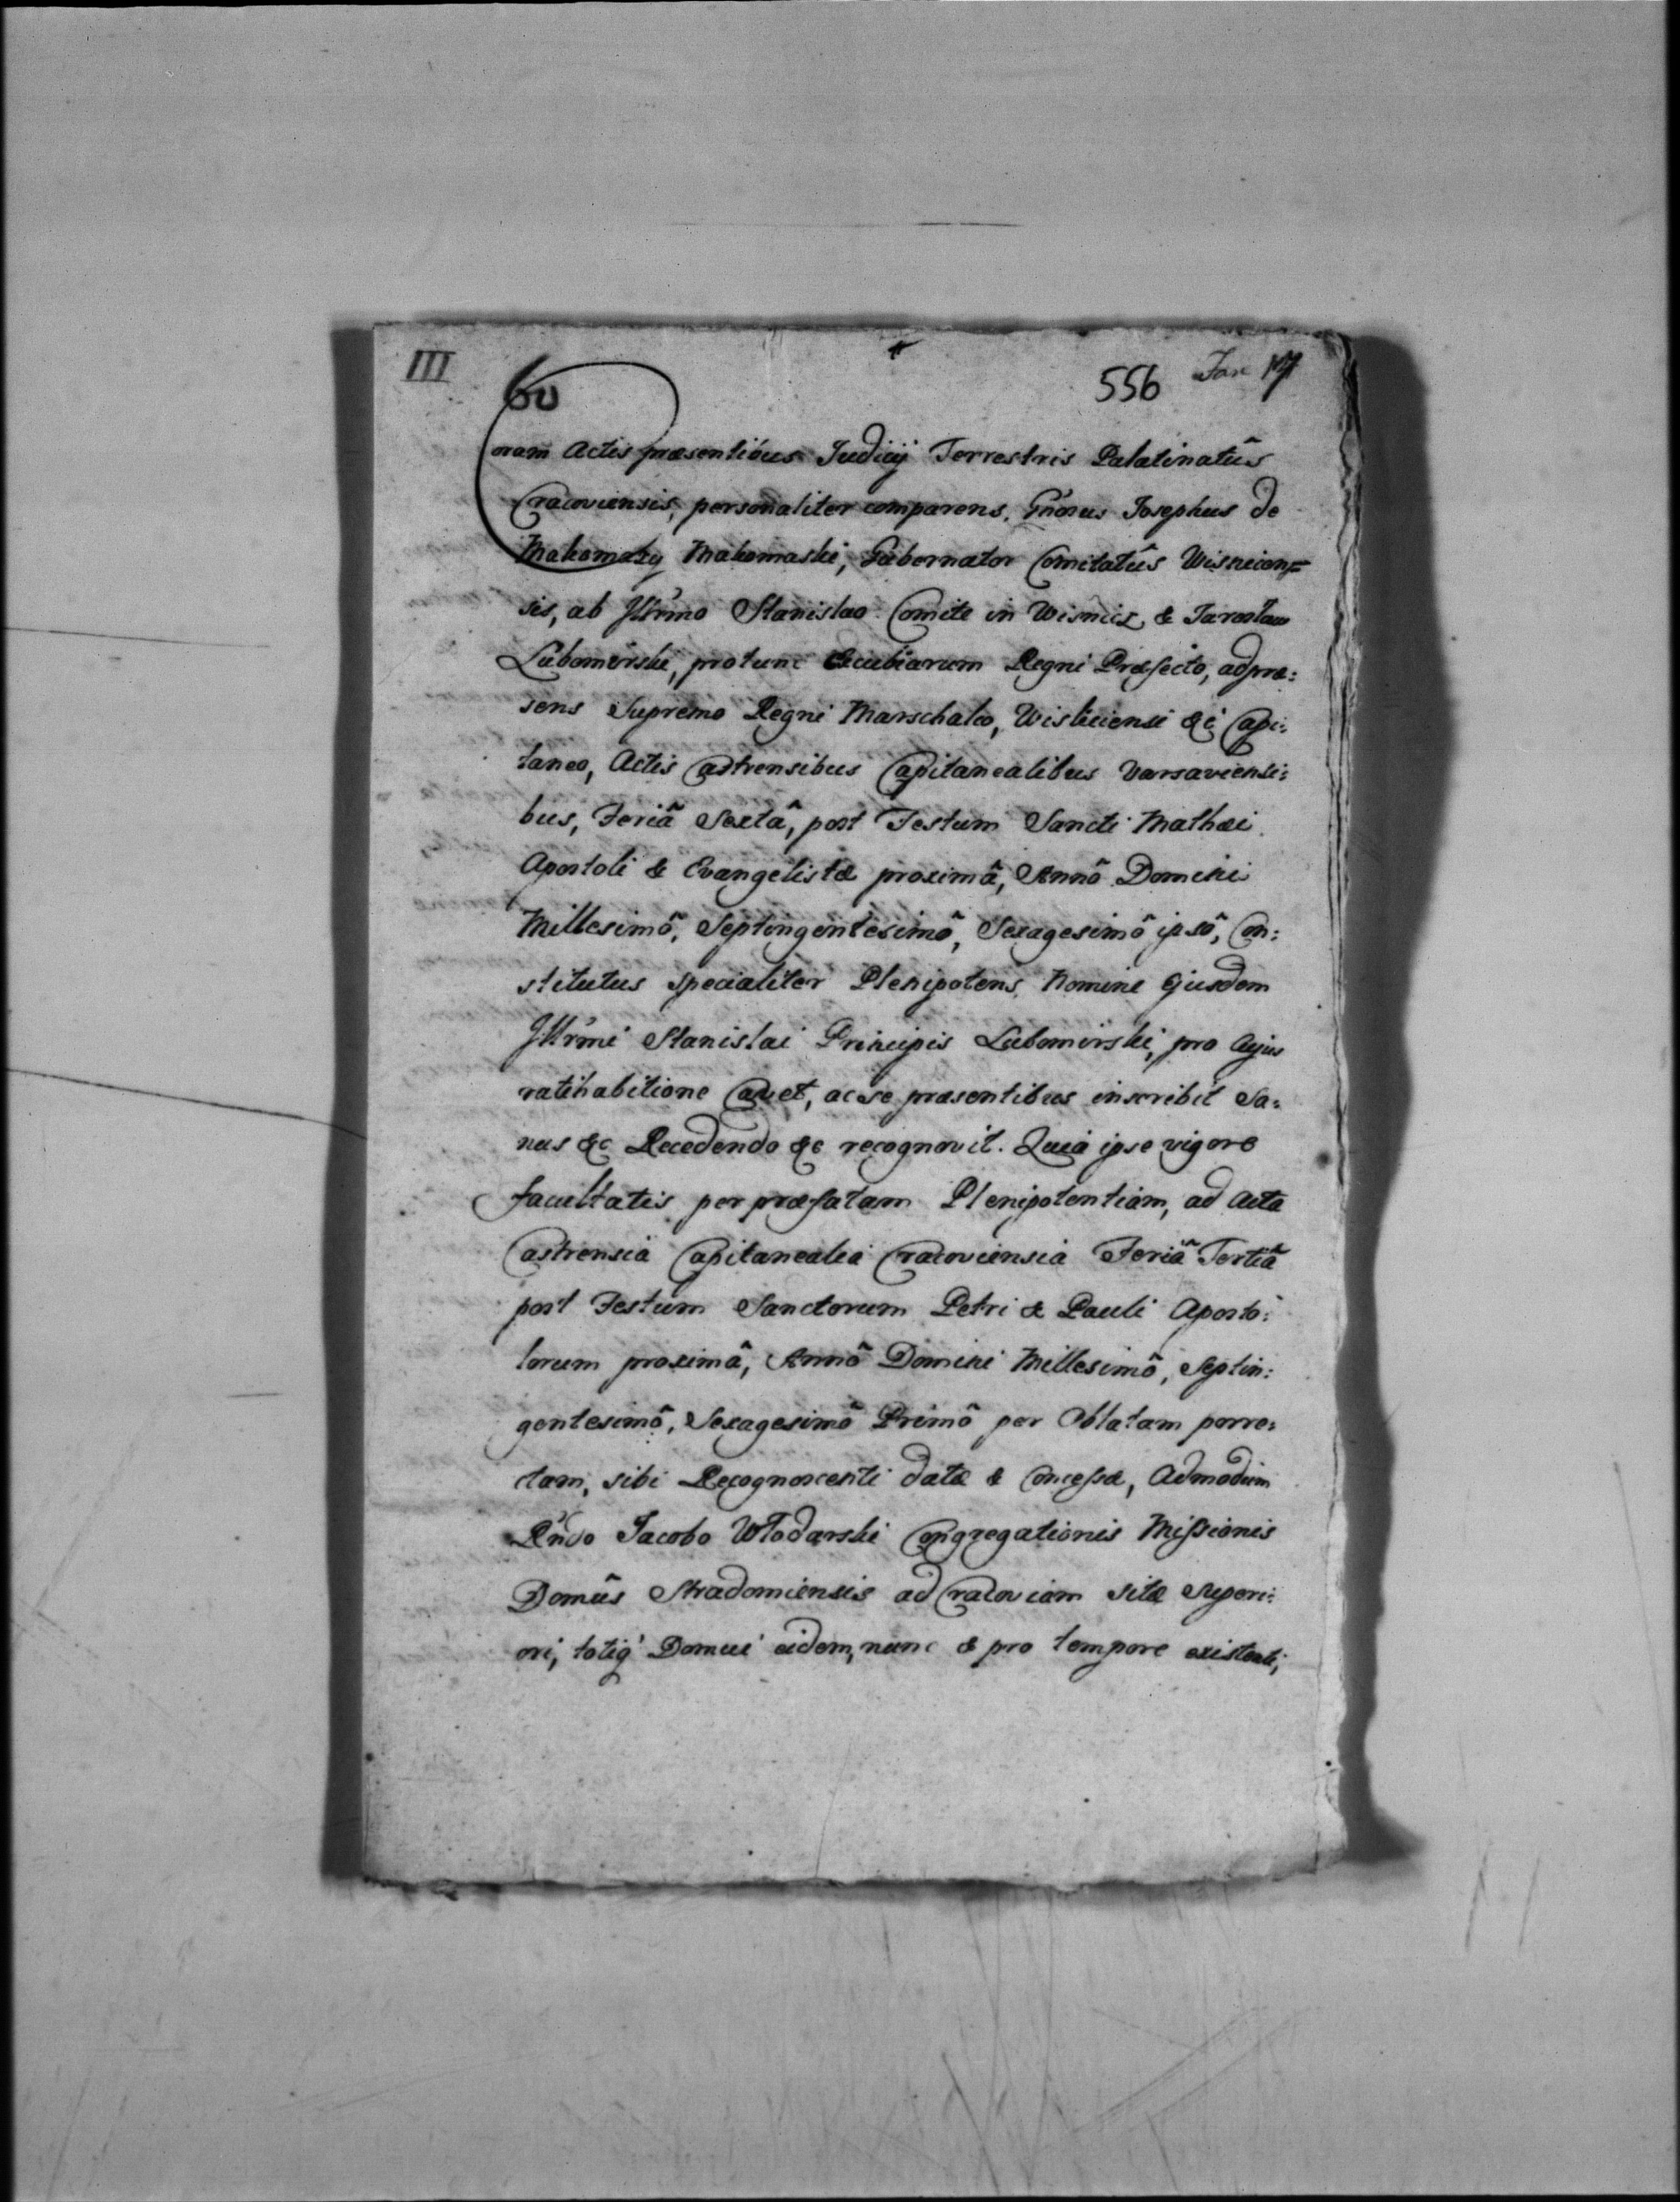 III
60
556 Jan 17
Coram Actis præsentibus Judicij Terrestris Palatinatûs
Cracoviensis, personaliter comparens, Gnosus Josephus de
Makomazy Makomaski, Gubernator Comitatûs Wisnicen=
sis, ab Jllrimo Stanislao Comite in Wisnicz & Jarosław
Lubomirski, protunc Excubiarum Regni Præfecto, ad præ:
sens Supremo Regni Marschalco, Wisliciensi &c Capi:
taneo, Actis Castrensibus Capitanealibus Varsaviensi:
bus, Feriâ Sextâ, post Festum Sancti Mathæi
Apostoli & Evangelistæ proximâ, Annô Domini
Millesimô, Septingentesimô, Sexagesimô ipsô, Con:
stitutus specialiter Plenipotens, Nomine Ejusdem
Jllrimi Stanislai Principis Lubomirski, pro Cujus
ratihabitione Cavet, ac se præsentibus inscribit Sa:
nus &c Recedendo &c recognovit. Quia ipse vigore
facultatis per præfatam Plenipotentiam, ad Acta
Castrensia Capitanealia Cracoviensia Feriâ Tertiâ
post Festum Sanctorum Petri & Pauli Aposto:
lorum proximâ, Annô Domini Millesimô, Septin:
gentesimô, Sexagesimô Primô per Oblatam porre:
ctam, sibi Recognoscenti datæ & Concessæ, Admodum
Rndo Jacobo Włodarski Congregationis Missionis
Domûs Stradomiensis ad Cracoviam sitæ Superi:
ori, totiq' Domui eidem, nunc & pro tempore existenti,